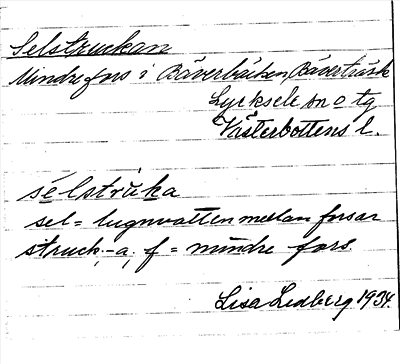 Selstruckan
Mindre fors i Bäverbäcken, Bäverträsk
Lycksele sn o tg
Västerbottens l.
selstruka
sel = lugnvatten mellan forsar
struck, -a, f = mindre fors.
Lisa Lidberg 1934.